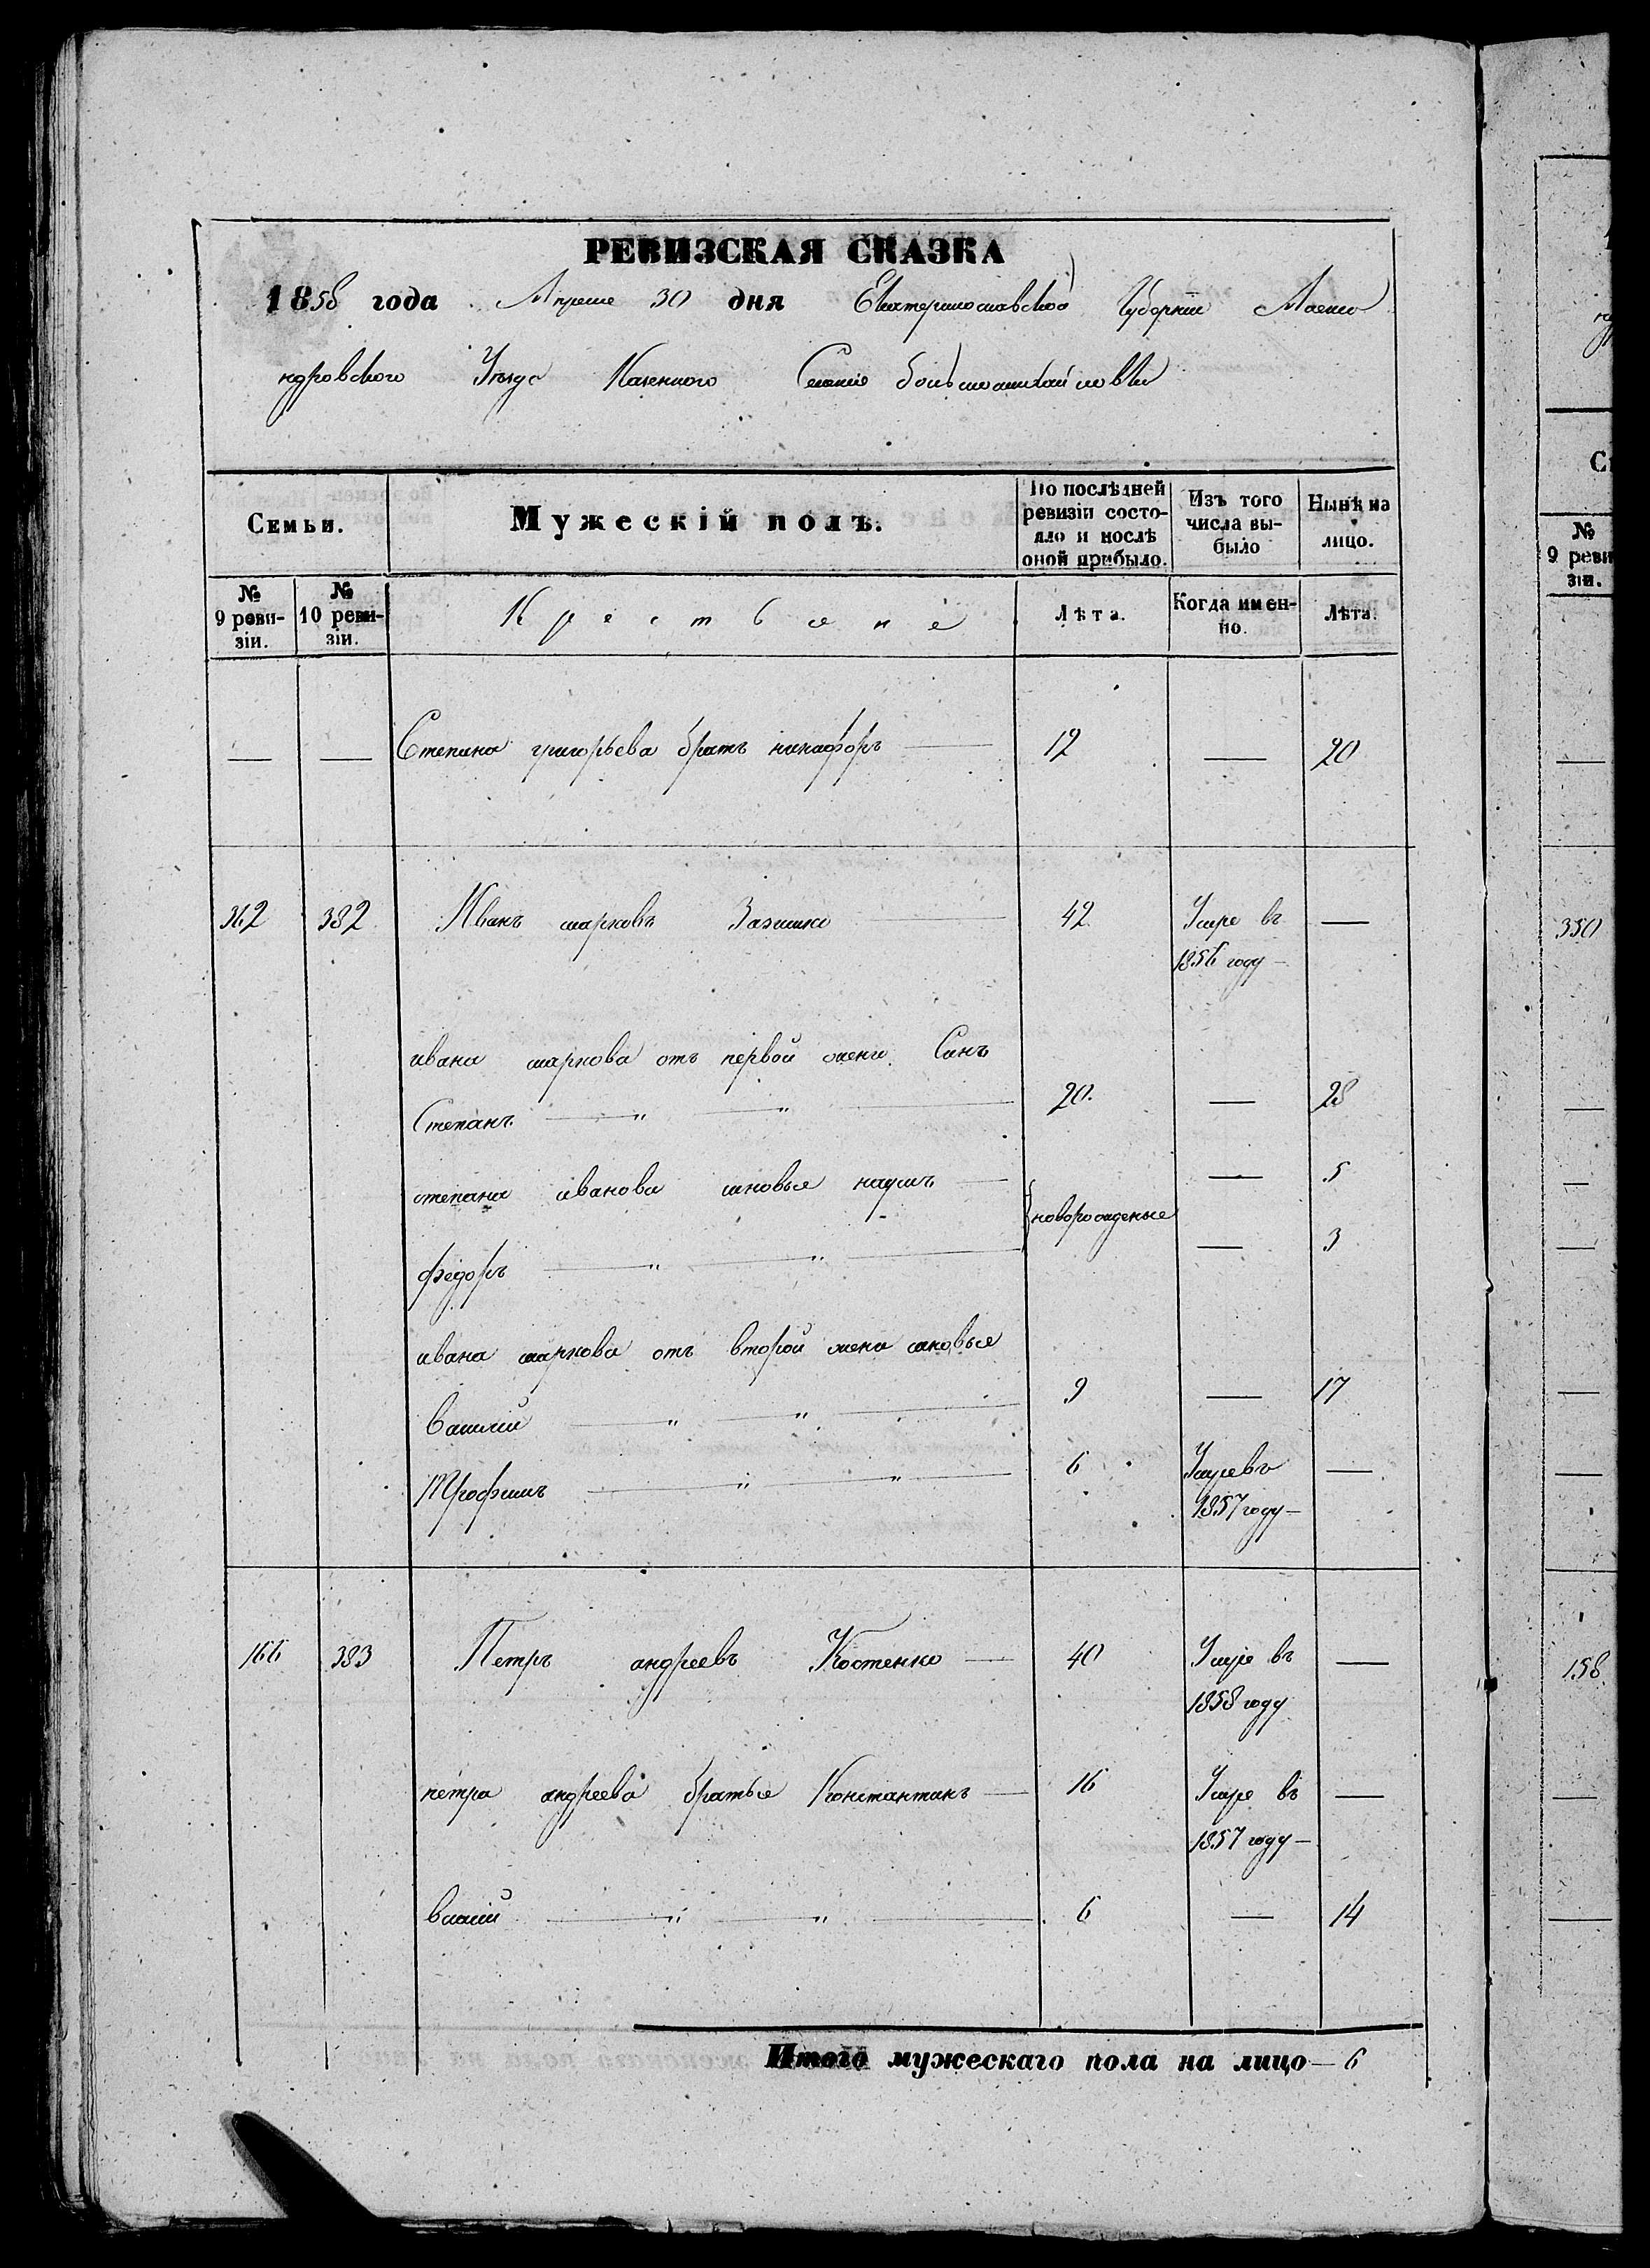 РЕВИЗСКАЯ СКАЗКА
1858 года Апреля 30 дня Екатеринославской Губернии Алекса
ндровского Уезда Казенного Селения большомихайловки
Семьи.
Мужескій полъ.
По послѣдней ревизіи состояло и послѣ оной прибыло.
Изъ того числа выбыло
Нынѣ на лицо.
№ 9 ревизіи.
№ 10 ревизіи.
Крестьяне
Лѣта.
Когда именно.
Лѣта.
— — Степана григорьева братъ никифоръ — 12 — 20
362 382 Иванъ марковъ 42 Умре въ —
1856 году —
ивана маркова отъ первой жени Синъ
Степанъ — " — " — 20. — 28
степана иванова синовья наумъ — — 5
новорожденые
федоръ — " — " — — 3
ивана маркова отъ второй жени синовья
василий — " — " — 9 — 17
Трофимъ — " — " — 6 Умре въ —
1857 году —
166 383 Петръ андреевъ Костенко — 40 Умре въ —
1858 году
петра андреева братья Константинъ — 16 Умре въ —
1857 году —
василий — " — " — 6 — 14
Итого мужескаго пола на лицо — 6
№
9 реви
зіи.
350
158